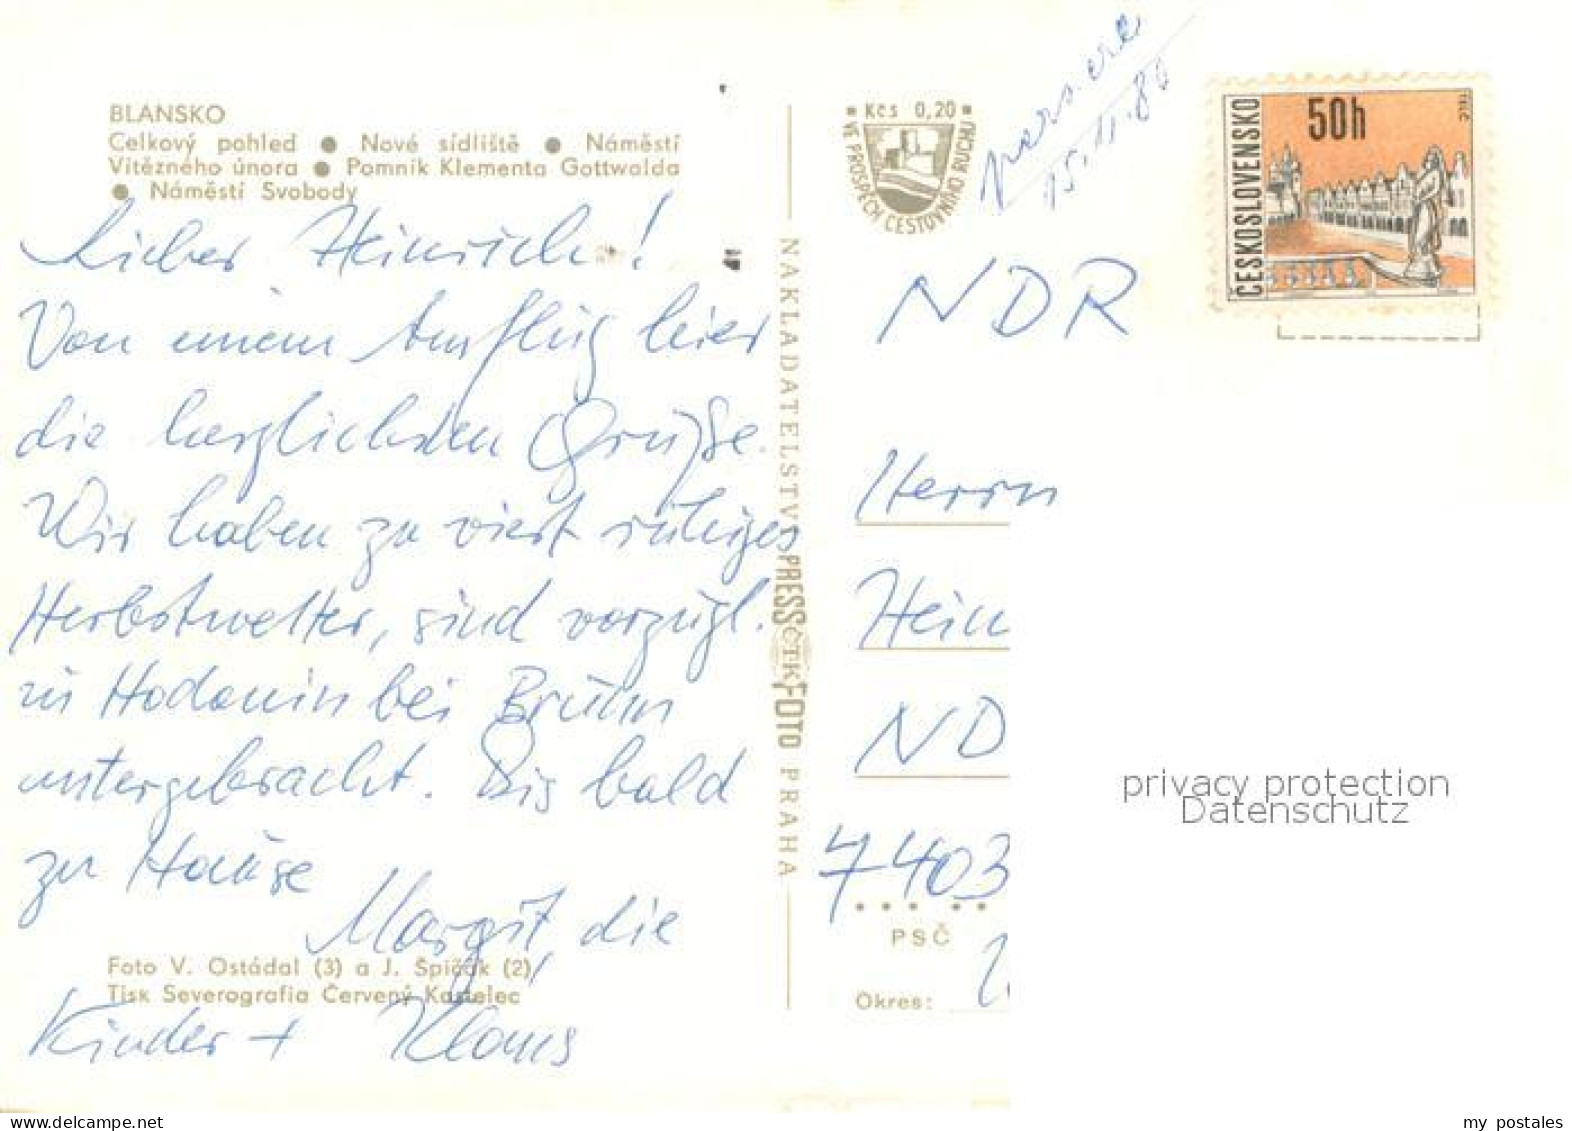 BLANSKO
Celkový pohled ● Nové sídliště ● Náměstí
Vítězného února ● Pomník Klementa Gottwalda
● Náměstí Svobody
Lieber Heinrich!
Von einem Ausflug hier
die herzlichsten Grüße.
Wir haben zu viert ruhiges
Herbstwetter, sind vorzügl.
in Hodonin bei Brünn
untergebracht. Bis bald
zu Hause
Margit, die
Kinder + Klaus
Foto V. Ostádal (3) a J. Špičák (2)
Tisk Severografia Červený Kostelec
NAKLADATELSTVÍ PRESSFOTO PRAHA
ČTK
Kčs 0,20
VE PROSPĚCH CESTOVNÍHO RUCHU
15.11.80
ČESKOSLOVENSKO
50h
TELČ
NDR
Herrn
Hein
ND
7403
PSČ
Okres:
privacy protection
Datenschutz
my postales